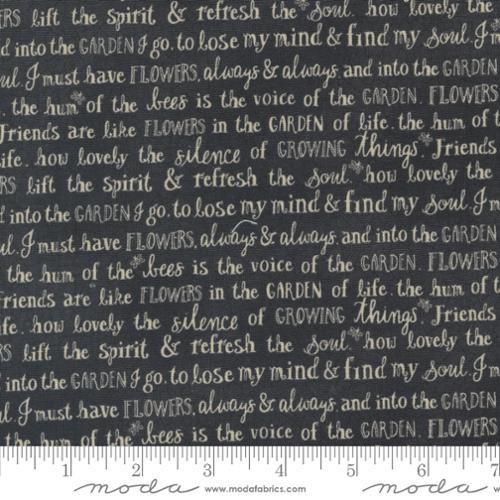 RS lift the spirit & refresh the soul how lovely the
d into the GARDEN I go. to lose my mind & find my soul. I m
ul. I must have FLOWERS, always & always. and into the GARDEN
. the hum of the bees is the voice of the GARDEN. FLOWERS
Friends are like FLOWERS in the GARDEN of life. the hum of t
ife. how lovely the silence of GROWING things. Friends
RS lift the spirit & refresh the soul how lovely the
d into the GARDEN I go. to lose my mind & find my soul. I m
ul. I must have FLOWERS, always & always. and into the GARDEN
. the hum of the bees is the voice of the GARDEN. FLOWERS
Friends are like FLOWERS in the GARDEN of life. the hum of t
ife. how lovely the silence of GROWING things. Friends
RS lift the spirit & refresh the soul how lovely the
into the GARDEN I go. to lose my mind & find my soul. I m
l. I must have FLOWERS, always & always. and into the GARDEN
the hum of the bees is the voice of the GARDEN. FLOWERS
1 2 3 4 5 6 7
moda www.modafabrics.com moda